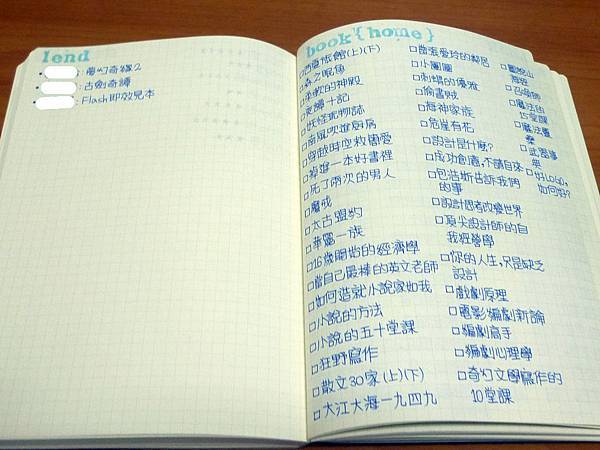 lend
: 夢幻奇緣2
: 古劍奇譚
: Flash即效見本
book {home}
□西夏旅館(上)(下)
□森之眠魚
□柔軟的神殿
□妖怪玩物誌
□南風吹進廚房
□穿越時空救簡愛
□掉進一本好書裡
□死了兩次的男人
□魔戒
□太古盟約
□華麗一族
□16歲開始的經濟學
□當自己最棒的英文老師
□如何造就小說家如我
□小說的方法
□小說的五十堂課
□狂野寫作
□散文30家(上)(下)
□大江大海一九四九
□當張愛玲的鄰居
□小團圓
□刺蝟的優雅
□偷書賊
□海神家族
□危崖有花
□設計是什麼?
□成功創意,不請自來
□包浩斯告訴我們
的事
□設計思考改變世界
□頂尖設計師的自
我經營學
□你的人生,只是缺乏
設計
□戲劇原理
□電影編劇新論
□編劇高手
□編劇心理學
□奇幻文學寫作的
10堂課
□召喚師
□魔法的
15堂課
□魔法書
□武器事
典
□好LOGO,
如何好?